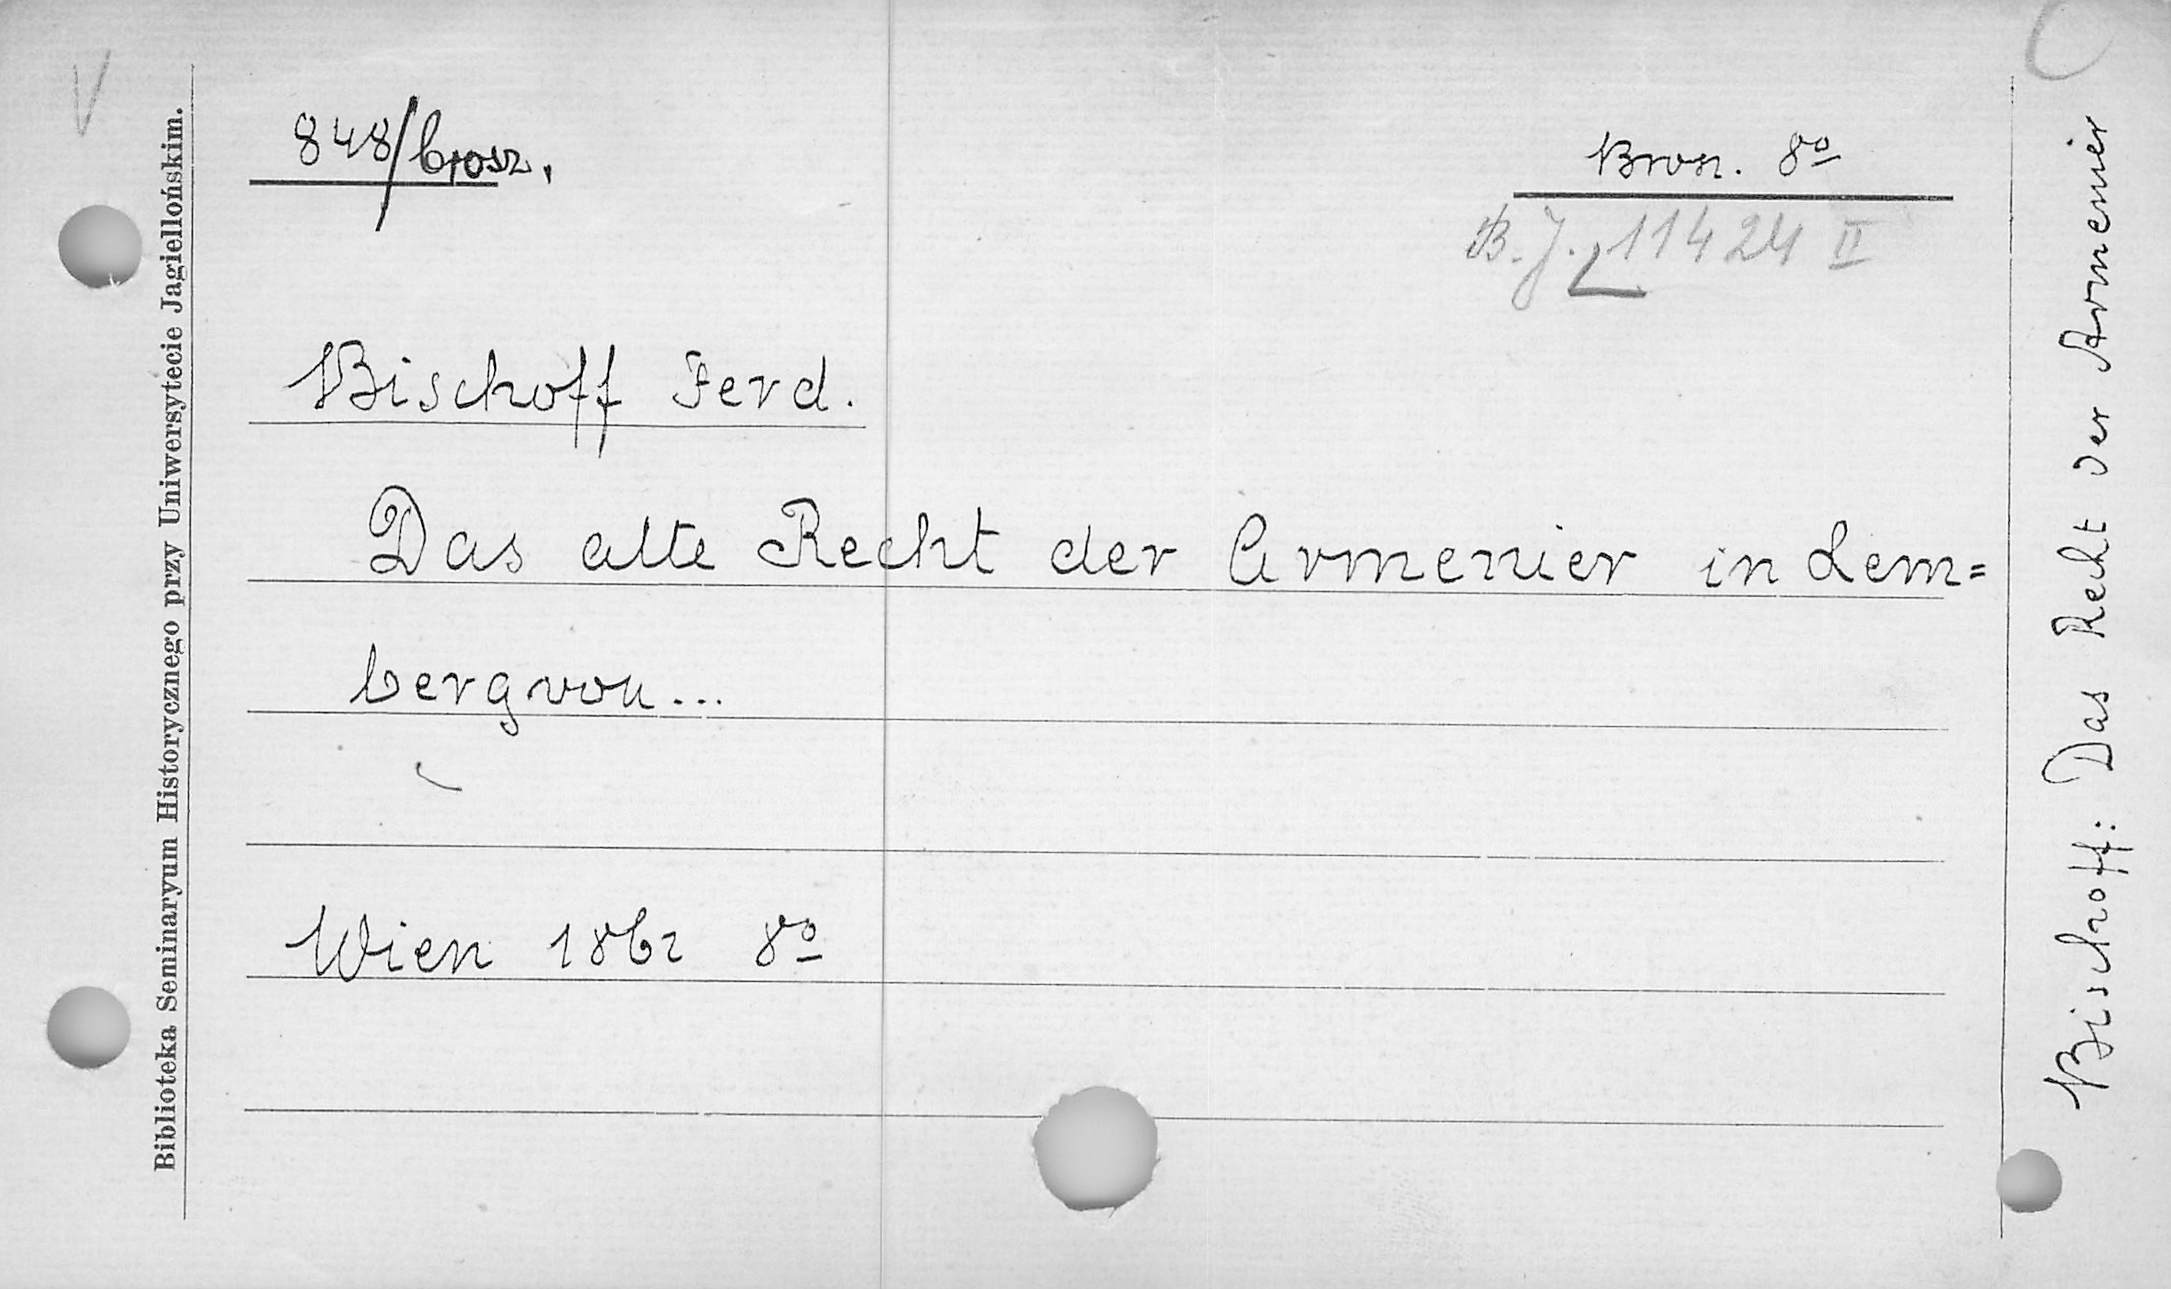 V
Biblioteka Seminaryum Historycznego przy Uniwersytecie Jagiellońskim.
848/brosz.
Brosz. 8º
B. J. 11424 II
Bischoff Ferd.
Das alte Recht der Armenier in Lem=
berg von...
Wien 1862 8º
Bischoff: Das Recht der Armenier